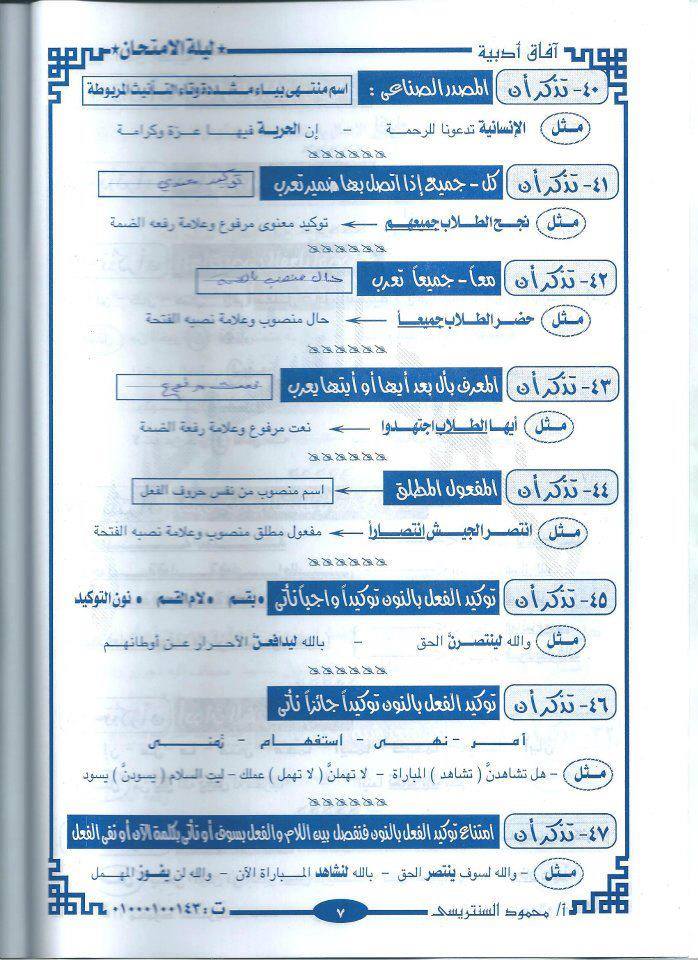 آفاق أدبية *ليلة الامتحان*
٤٠- تذكر أن المصدر الصناعى : اسم منتهى بياء مشددة وتاء التأنيث المربوطة
مثل الإنسانية تدعونا للرحمة - إن الحرية فيها عزة وكرامة
٤١- تذكر أن كل - جميع إذا اتصل بها ضمير تعرب توكيد معنوى
مثل نجح الطلاب جميعهم ← توكيد معنوى مرفوع وعلامة رفعه الضمة
٤٢- تذكر أن معاً - جميعاً تعرب حال منصوب
مثل حضر الطلاب جميعـاً ← حال منصوب وعلامة نصبه الفتحة
٤٣- تذكر أن المعرف بأل بعد أيها أو أيتها يعرب نعت مرفوع
مثل أيها الطلاب اجتهدوا ← نعت مرفوع وعلامة رفعة الضمة
٤٤- تذكر أن المفعول المطلق ← اسم منصوب من نفس حروف الفعل
مثل انتصر الجيش انتصاراً ← مفعول مطلق منصوب وعلامة نصبه الفتحة
٤٥- تذكر أن توكيد الفعل بالنون توكيداً واجباً نأتى • بقسم • لام القسم • نون التوكيد
مثل والله لينتصرنَّ الحق - بالله ليدافعنَّ الأحرار عن أوطانهم
٤٦- تذكر أن توكيد الفعل بالنون توكيداً جائزاً نأتى
أمر - نهى - استفهام - تمنى
مثل - هل تشاهدنَّ ( تشاهد ) المباراة - لا تهملنَّ ( لا تهمل ) عملك - ليت السلام ( يسودنَّ ) يسود
٤٧- تذكر أن امتناع توكيد الفعل بالنون فنفصل بين اللام والفعل بسوف أو نأتى بكلمة الآن أو نفى الفعل
مثل - والله لسوف ينتصر الحق - بالله لنشاهد المباراة الآن - والله لن يفوز المهمل
أ/ محمود السنتريسى ٧ ت : ٠١٠٠٠١٠٠١٤٣